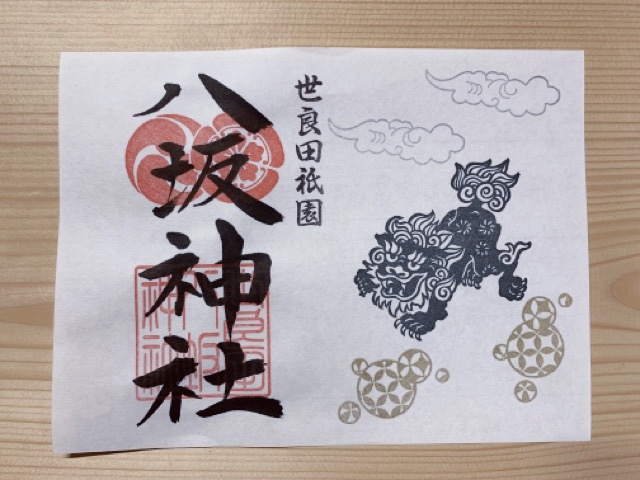 世良田祇園
八坂神社